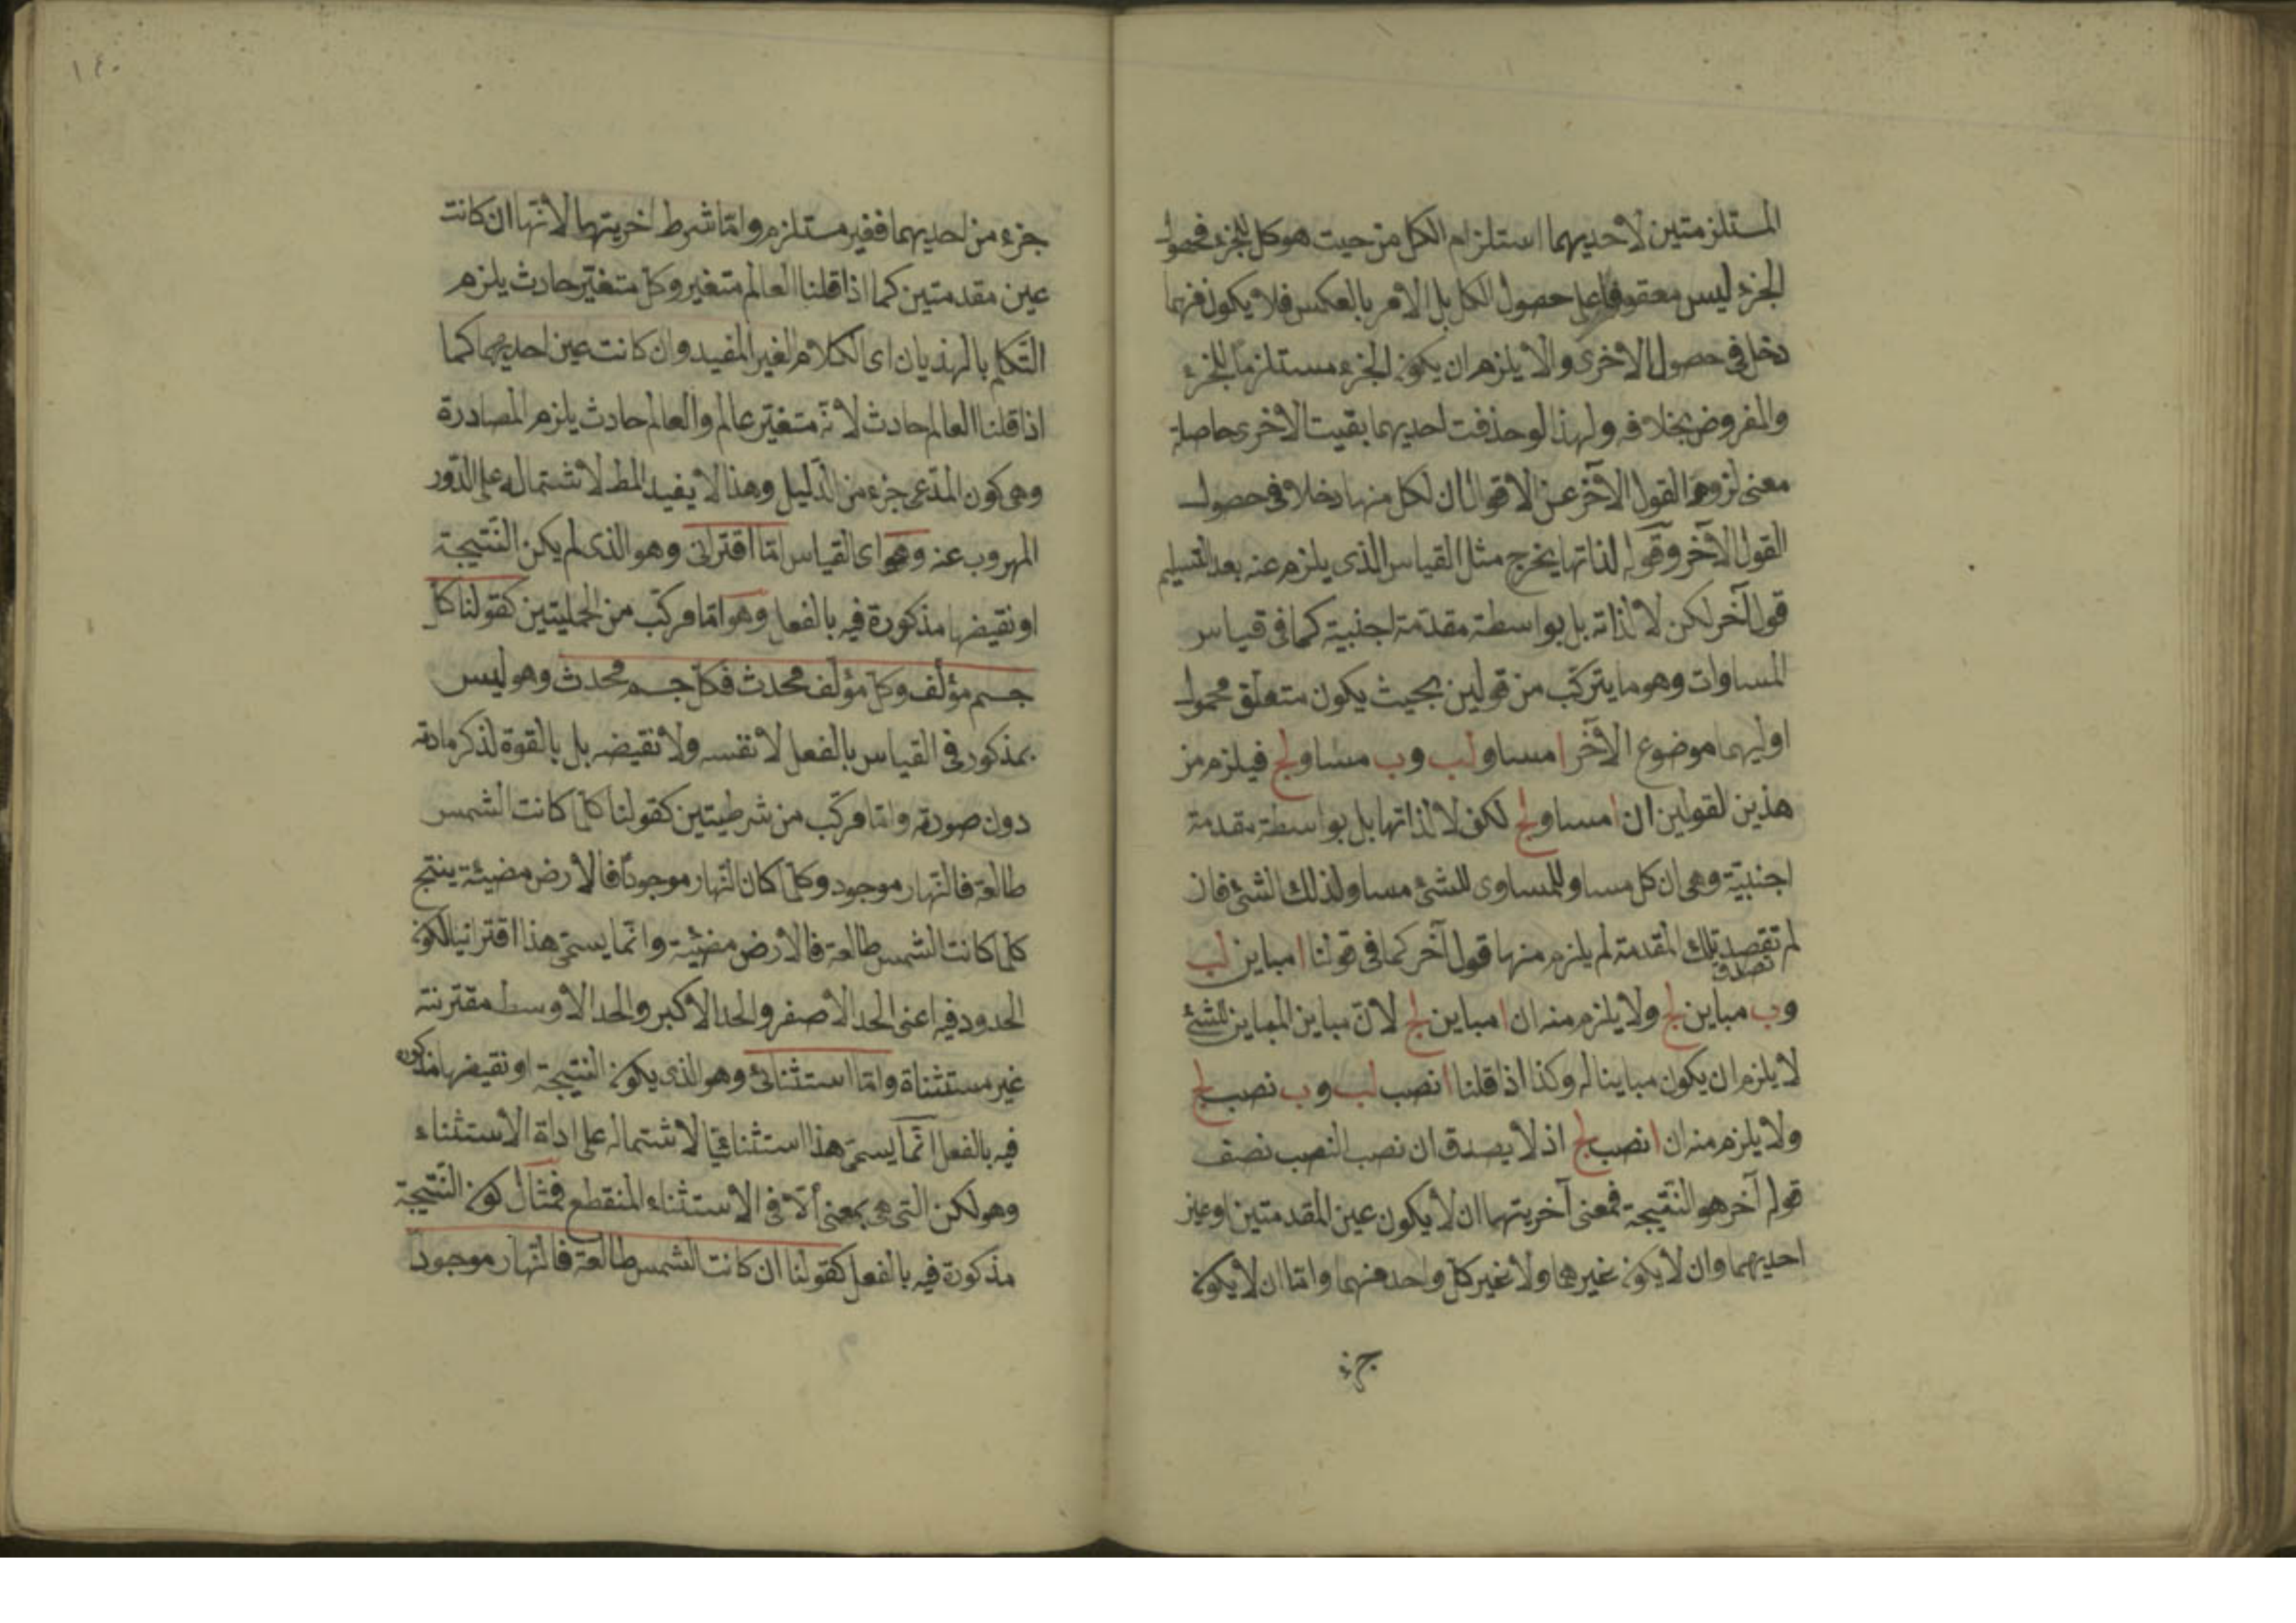 المستلزمتين لاحديهما استلزام الكل من حيث هو كل للجزء فحصول
الجزء ليس معقوفا على حصول الكل بل الامر بالعكس فلا يكون فيهما
دخل فى حصول الاخرى والا يلزم ان يكون الجزء مستلزما للجزء
والمفروض بخلافه ولهذا لو حذفت احديهما بقيت الاخرى حاصلة
معنى لزوم القول الآخر عن الاقوال ان لكل منها دخلا فى حصول
القول الآخر وقوله لذاتها يخرج مثل القياس الذى يلزم عنه بعد التسليم
قول آخر لكن لا لذاته بل بواسطة مقدمة اجنبية كما فى قياس
المساوات وهو ما يتركب من قولين بحيث يكون متعلق محمول
اوليهما موضوع الآخر ا مساو لب وب مساو لج فيلزم من
هذين القولين ان ا مساو لج لكن لا لذاتها بل بواسطة مقدمة
اجنبيّة وهى ان كل مساو للمساوى للشئ مساو لذلك الشئ فان
لم تقصد تلك المقدمة لم يلزم منها قول آخر كما فى قولنا ا مباين لب
تصدق
وب مباين لج ولا يلزم منه ان ا مباين لج لانّ مباين المباين للشئ
لا يلزم ان يكون مباينا له وكذا اذا قلنا ا نصب لب وب نصب لج
ولا يلزم منه ان ا نصب لج اذ لا يصدق ان نصب النصب نصف
قوله آخر هو النتيجة فمعنى آخريتهما ان لا يكون عين المقدمتين او عين
احديهما وان لا يكون غيرهما ولا غير كل واحد منهما واما ان لا يكون
جزء
١٤٠
جزء من احديهما فغير مستلزم واما شرط اخريتهما لانها ان كانت
عين مقدمتين كما اذا قلنا العالم متغير وكل متغيّر حادث يلزم
التكلم بالهذيان اى الكلام الغير المفيد وان كانت عين احديهما كما
اذا قلنا العالم حادث لانه متغيّر عالم والعالم حادث يلزم المصادرة
وهى كون المدّعى جزء من الدّليل وهذا لا يفيد المط لاشتماله على الدّور
المهروب عنه وهو اى القياس امّا اقترانى وهو الذى لم يكن النتيجة
او نقيضها مذكورة فيه بالفعل وهو امّا مركب من الحمليتين كقولنا كل
جسم مؤلف وكل مؤلف محدث فكل جسم محدث وهو ليس
بمذكور فى القياس بالفعل لا نفسه ولا نقيضه بل بالقوة لذكر مادته
دون صورته وامّا مركب من شرطيتين كقولنا كلّما كانت الشمس
طالعة فالنّهار موجود وكلّما كان النّهار موجودًا فالارض مضيئة ينتج
كلما كانت الشمس طالعة فالارض مضيئة وانّما يسمّى هذا اقترانيا لكون
الحدود فيه اعنى الحد الاصغر والحد الاكبر والحد الاوسط مقترنة
غير مستثناة وامّا استثنائ وهو الذى يكون النتيجة او نقيضها مذكورة
فيه بالفعل انّما يسمّى هذا استثنائيّا لاشتماله على اداة الاستثناء
وهو لكن التى هى بمعنى ألاّ فى الاستثناء المنقطع فمثال كون النّتيجة
مذكورة فيه بالفعل كقولنا ان كانت الشمس طالعة فالنّهار موجود